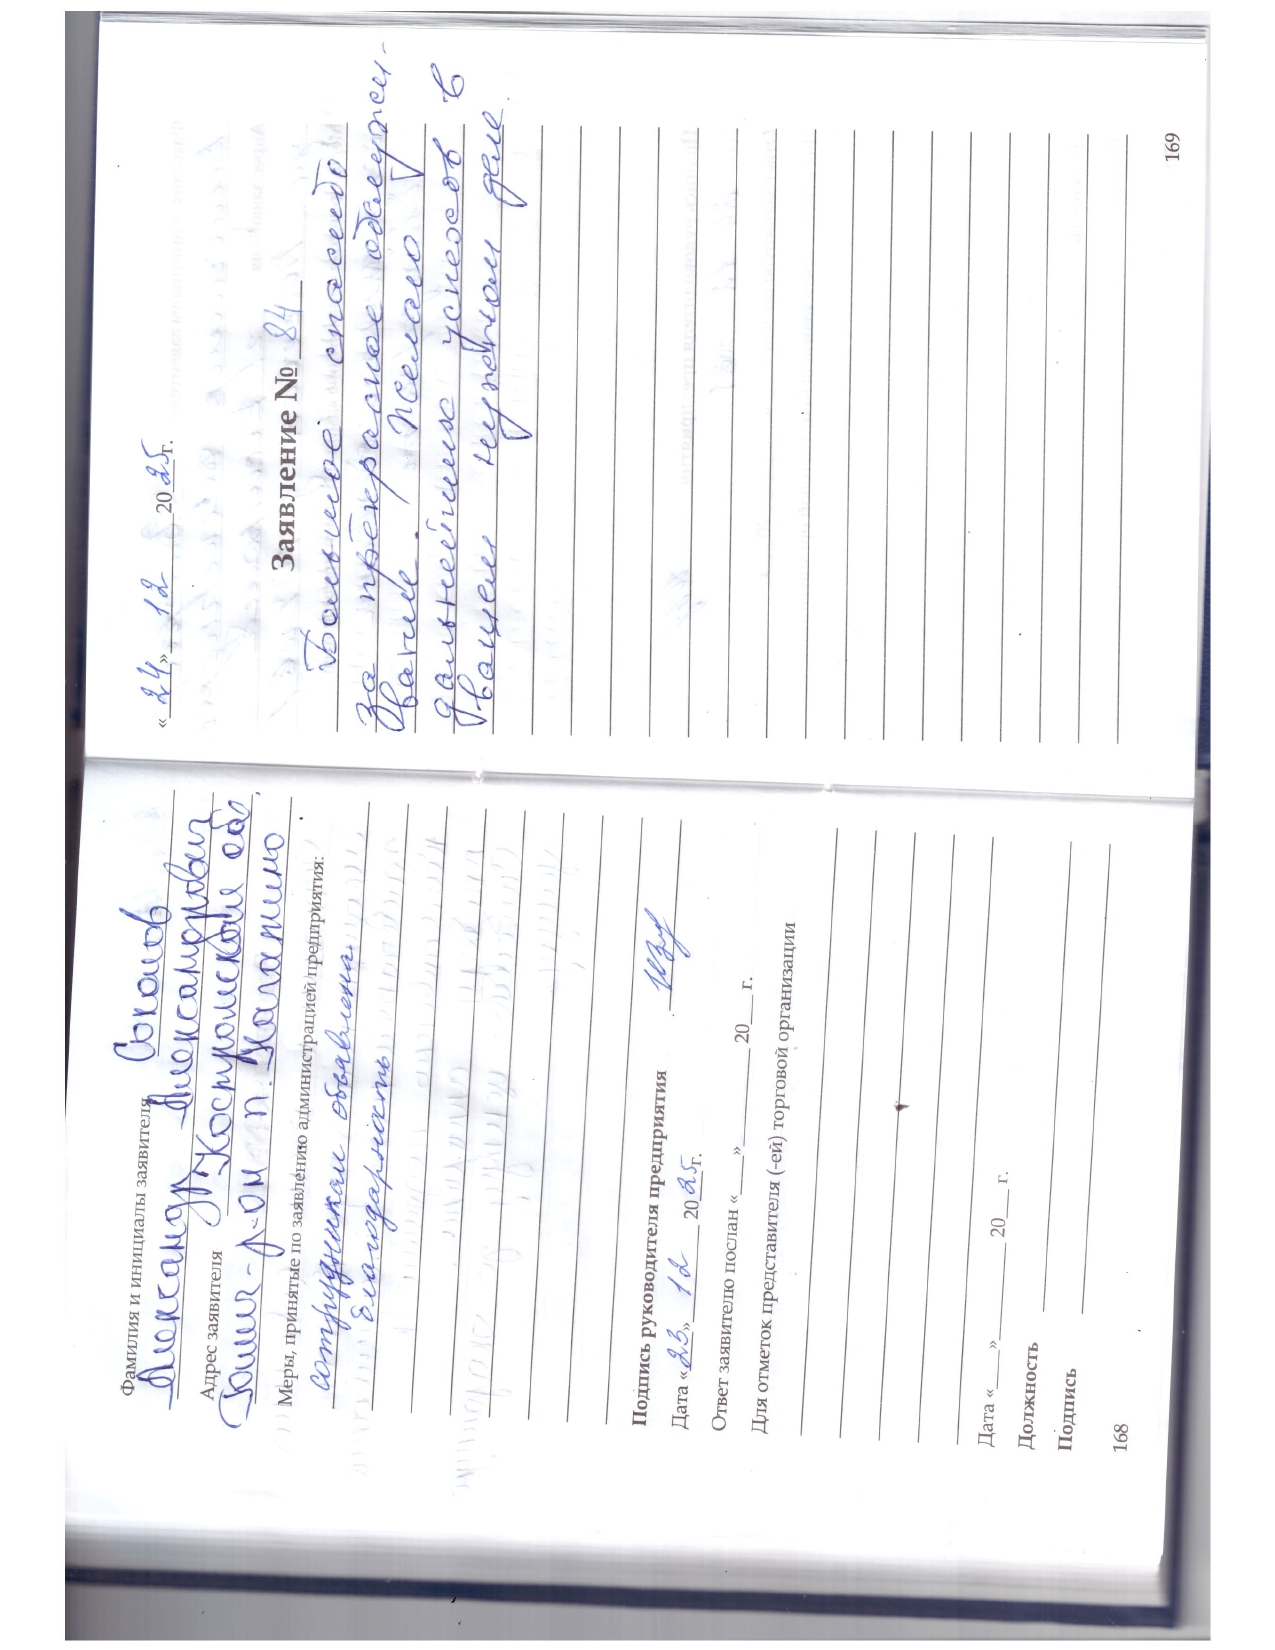 Фамилия и инициалы заявителя Соколов
Александр Александрович
Адрес заявителя Костромской об.
р-он п.
Меры, принятые по заявлению администрацией предприятия:
сотрудникам объявлена
благодарность
Подпись руководителя предприятия
Дата «23» 12 2025г.
Ответ заявителю послан «___»__________ 20___ г.
Для отметок представителя (-ей) торговой организации
Дата «___»__________ 20___ г.
Должность
Подпись
168
«24» 12 2025г.
Заявление № 84
Большое спасибо
за прекрасное обслужи-
вание! Желаю
дальнейших успехов в
вашем нужном деле.
169